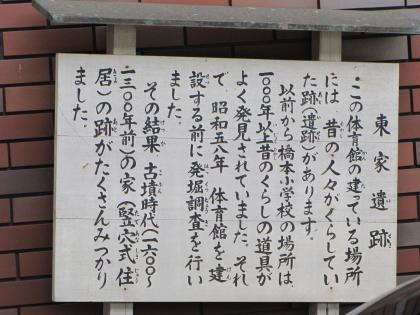 東家遺跡
この体育館の建っている場所
には、昔の人々がくらしてい
た跡(遺跡)があります。
以前から橋本小学校の場所は、
一〇〇〇年以上昔のくらしの道具が
よく発見されていました。それ
で、昭和五八年、体育館を建
設する前に発掘調査を行い
ました。
その結果、古墳時代(一六〇〇〜
一三〇〇年前)の家(竪穴式住
居)の跡がたくさんみつかり
ました。